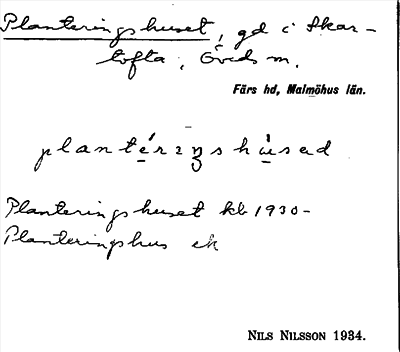 Planteringshuset, gd i Skar-
tofta, Öveds sn.
Färs hd, Malmöhus län.
plantérıŋshùsəd
Planteringshuset kb 1930-
Planteringshus ek
Nils Nilsson 1934.